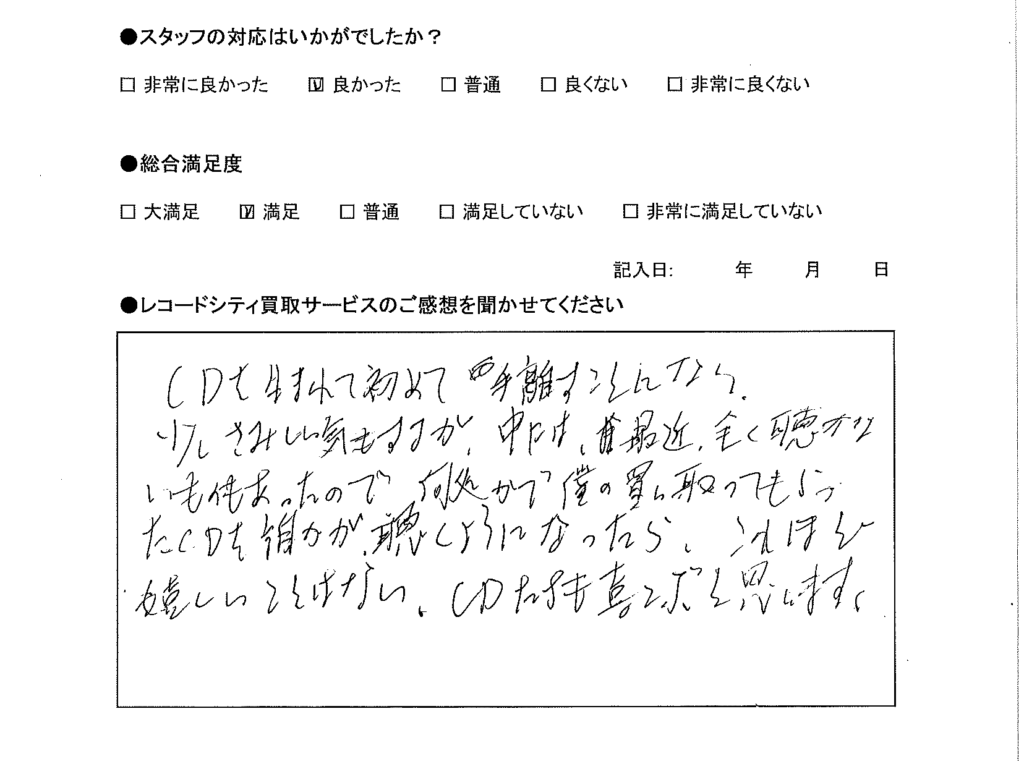 ●スタッフの対応はいかがでしたか？
□ 非常に良かった ☑ 良かった □ 普通 □ 良くない □ 非常に良くない
●総合満足度
□ 大満足 ☑ 満足 □ 普通 □ 満足していない □ 非常に満足していない
記入日: 年 月 日
●レコードシティ買取サービスのご感想を聞かせてください
CDを生まれて初めて手離すことになり、
少しさみしい気もするが、中には、最近、全く聴かな
いものもあったので何処かで僕の買い取ってもらっ
たCDを誰かが、聴くようになったら、これほど
嬉しいことはない。CDたちも喜ぶと思います。